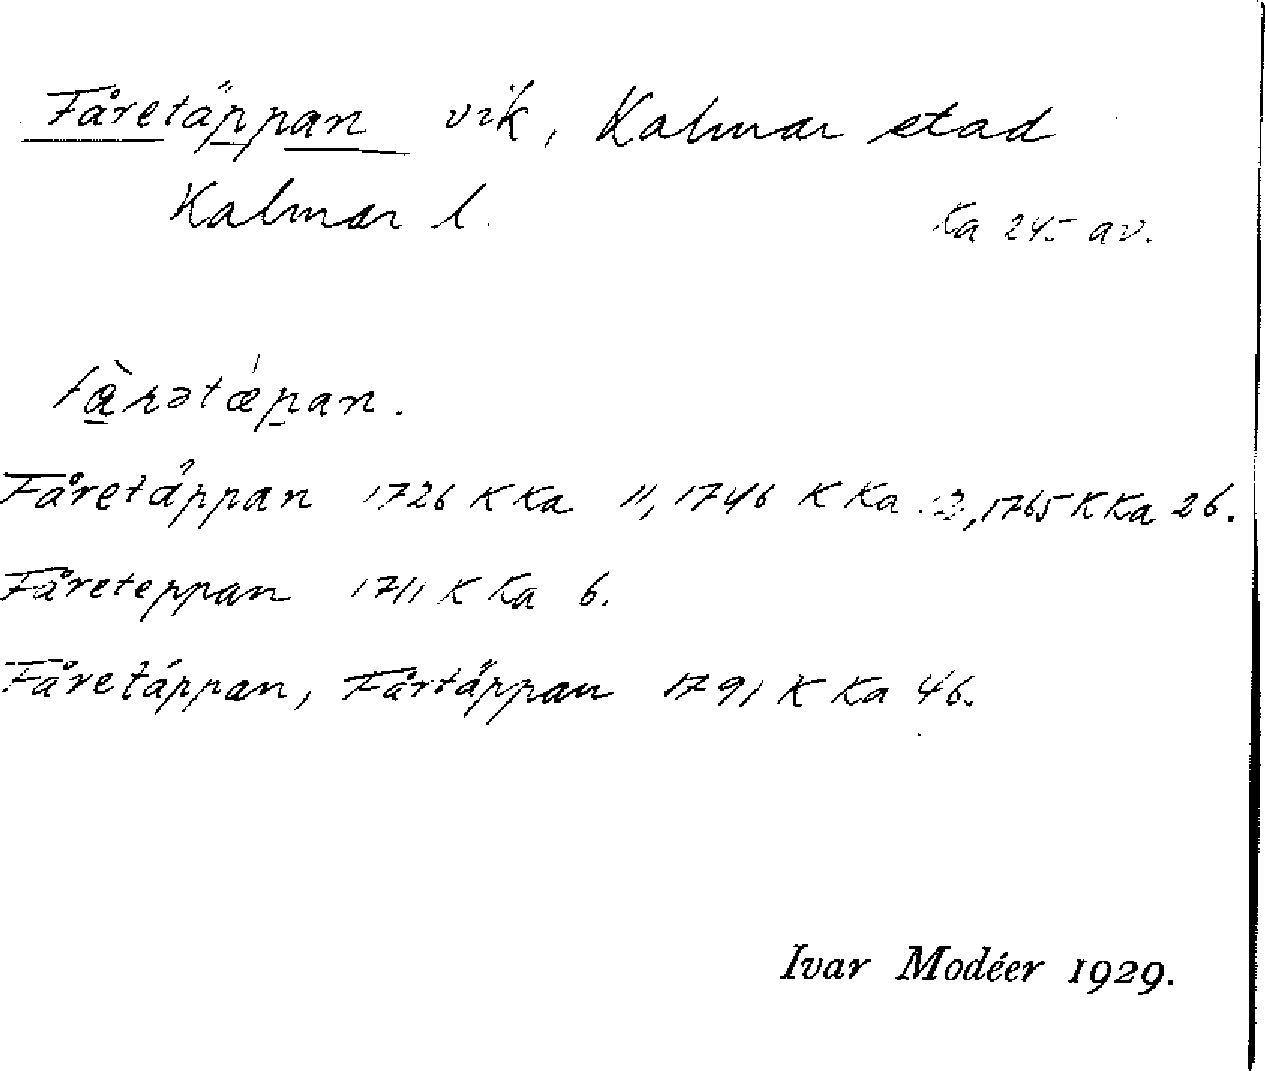 Fåretäppan vik, Kalmar stad
Kalmar l.
Ka 245 av.
fàrətæ̍pan.
Fåretäppan 1726 K Ka 11, 1746 K Ka 13, 1765 K Ka 26.
Fåreteppan 1711 K Ka 6.
Fåretäppan, Fårtäppan 1791 K Ka 46.
Ivar Modéer 1929.